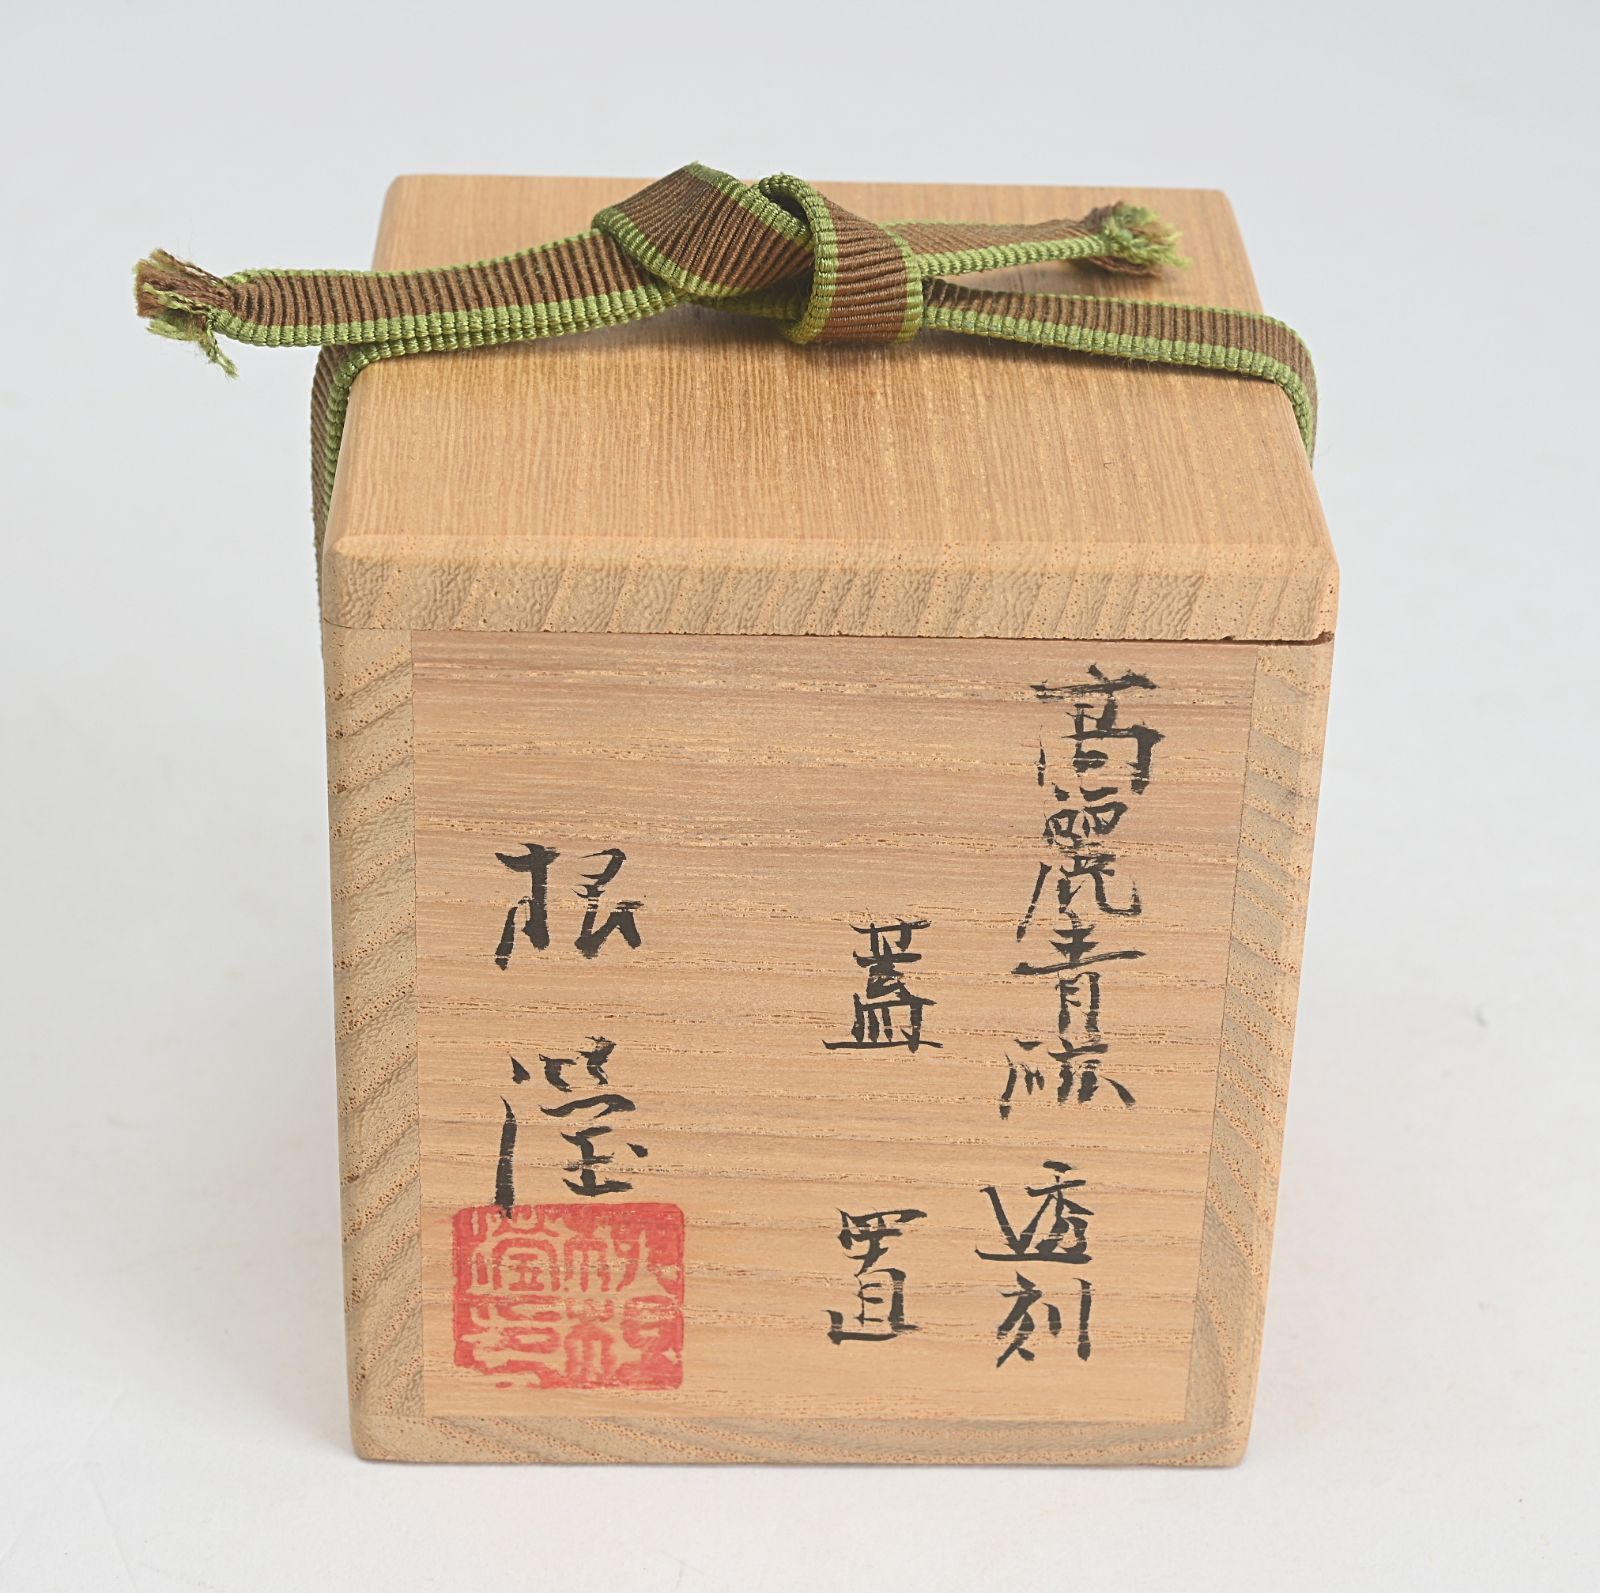 高麗青磁 透刻
蓋置
根瀅